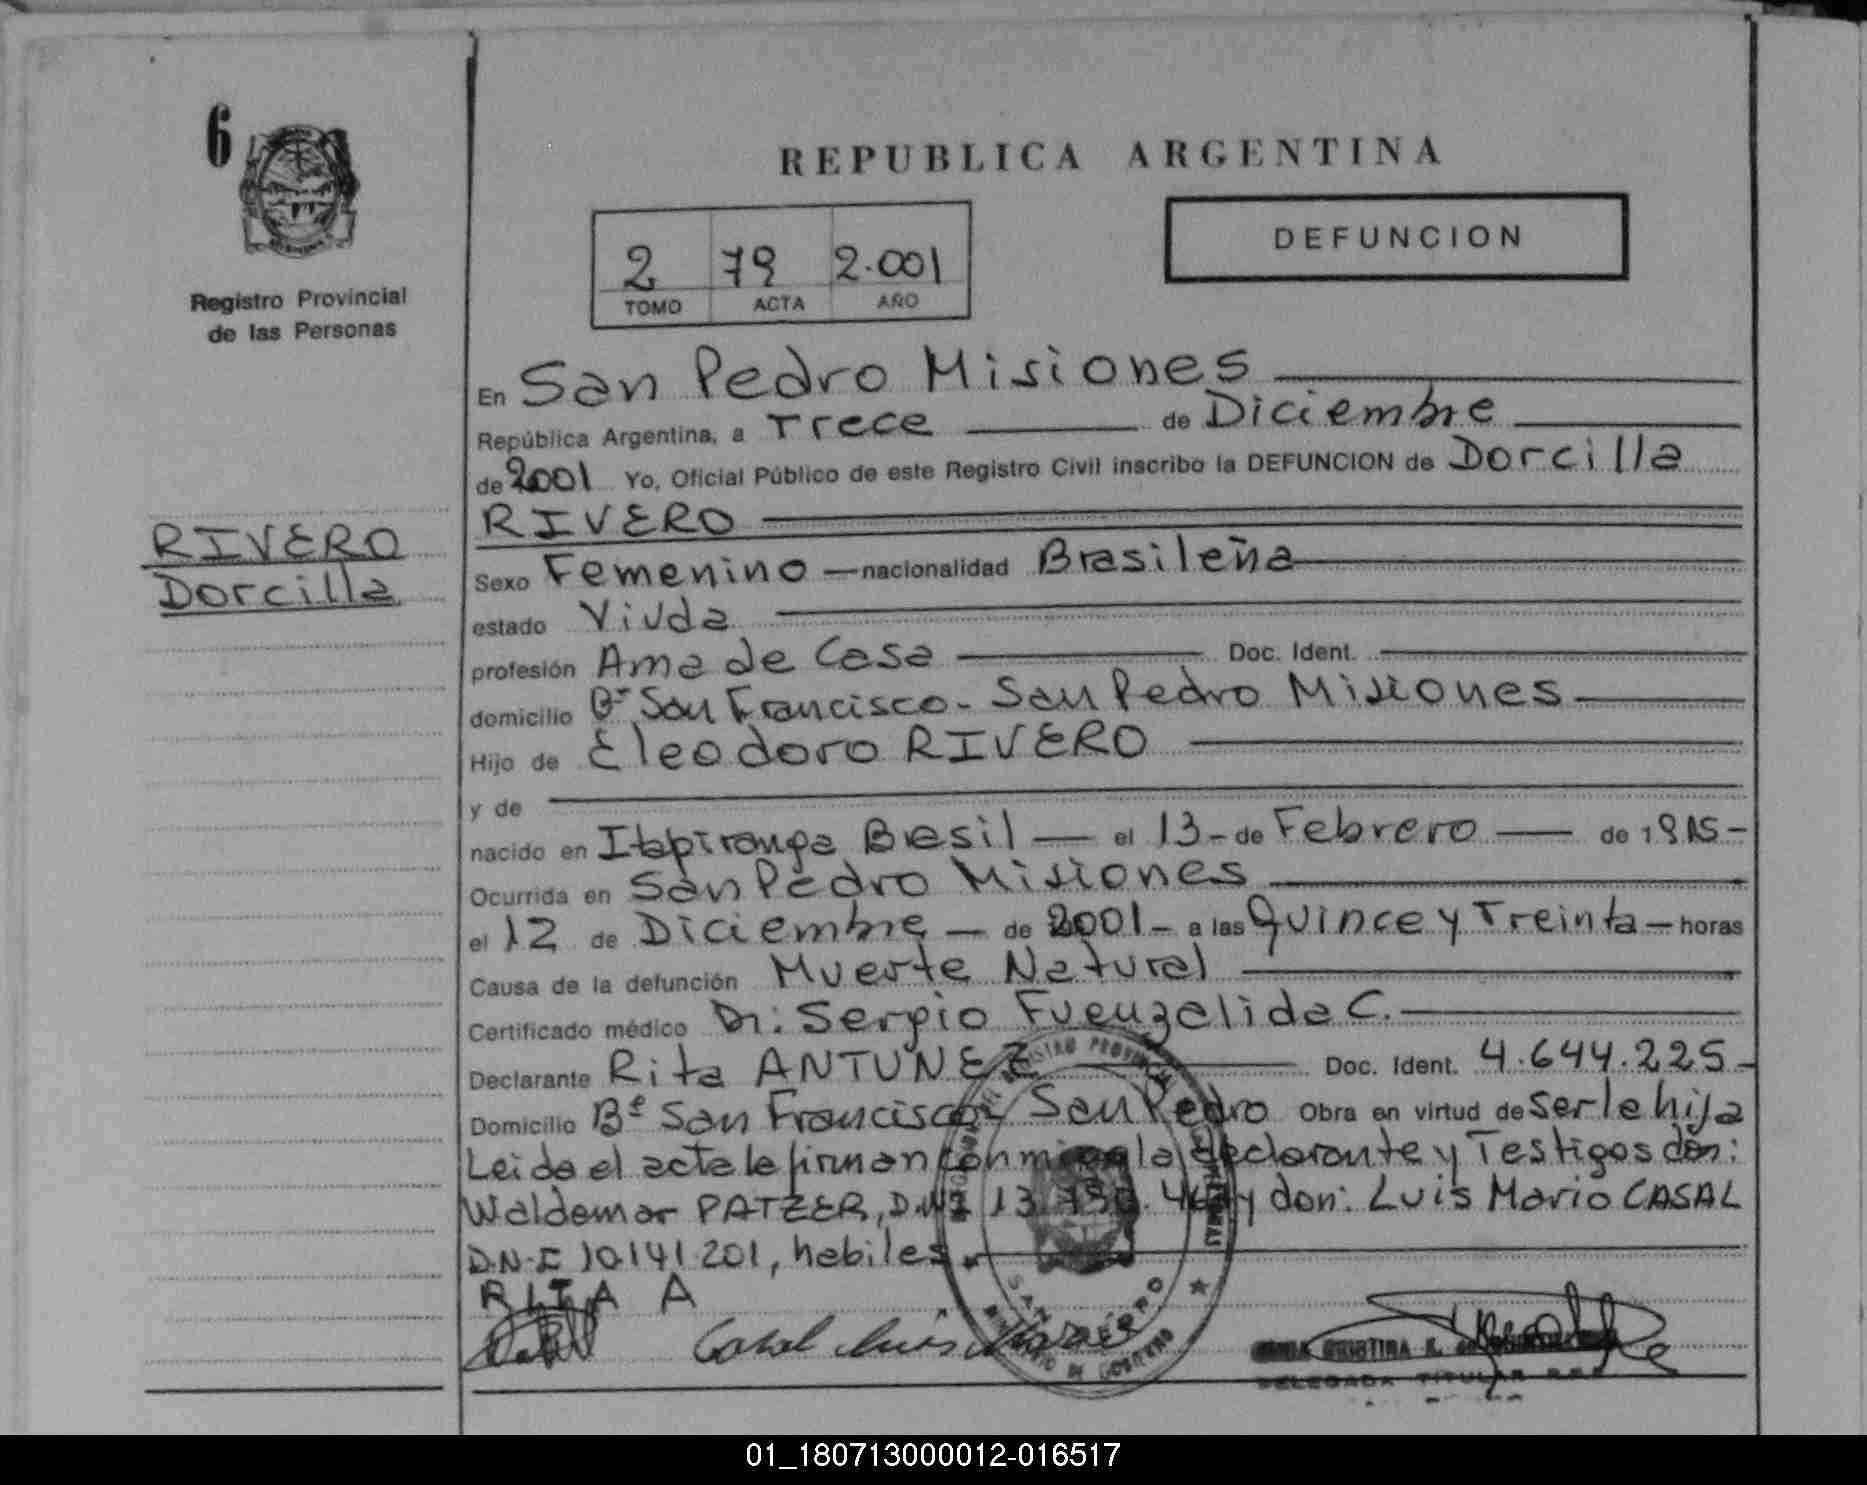 6
Registro Provincial
de las Personas
RIVERO
Dorcilla
REPUBLICA ARGENTINA
2 79 2.001
TOMO ACTA AÑO
DEFUNCION
En San Pedro Misiones
República Argentina, a Trece de Diciembre
de 2001 Yo, Oficial Público de este Registro Civil inscribo la DEFUNCION de Dorcilla
RIVERO
Sexo Femenino nacionalidad Brasileña
estado Viuda
profesión Ama de Casa Doc. Ident.
domicilio Bº San Francisco - San Pedro Misiones
Hijo de Eleodoro RIVERO
y de
nacido en Itapiranga Brasil el 13 de Febrero de 1915
Ocurrida en San Pedro Misiones
el 12 de Diciembre de 2001 a las Quince y Treinta horas
Causa de la defunción Muerte Natural
Certificado médico Dr: Sergio Fuenzalida C.
Declarante Rita ANTUNEZ Doc. Ident. 4.644.225
Domicilio Bº San Francisco - San Pedro Obra en virtud de ser la hija
Leida el acta la firman con migo la declarante y Testigos don:
Waldemar PATZER, D.N.I 13. y don: Luis Mario CASAL
D.N.I 10.141.201, habiles.
RITA A
Casal Luis Mario
REGISTRO PROVINCIAL DE LAS PERSONAS
SAN PEDRO
MINISTERIO DE GOBIERNO
CRISTINA
DELEGADA TITULAR
01_180713000012-016517